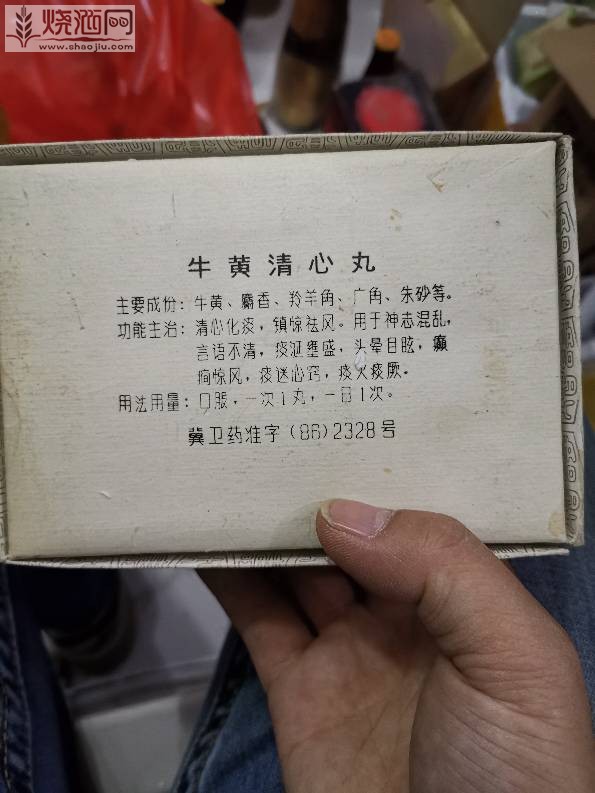 烧酒网
www.shaojiu.com
牛黄清心丸
主要成份：牛黄、麝香、羚羊角、广角、朱砂等。
功能主治：清心化痰，镇惊祛风。用于神志混乱，
言语不清，痰涎壅盛，头晕目眩，癫
痫惊风，痰迷心窍，痰火痰厥。
用法用量：口服，一次1丸，一日1次。
冀卫药准字（86）2328号